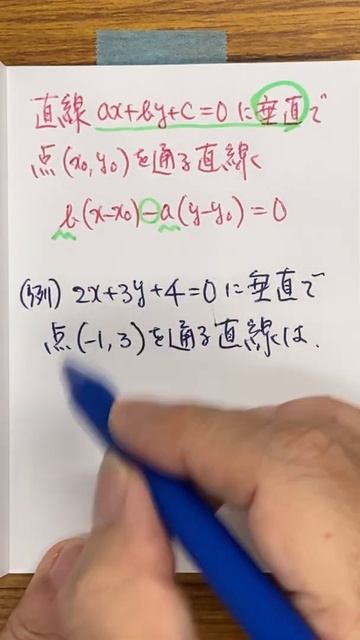 直線 ax+by+c=0 に垂直で
点(x₀,y₀)を通る直線は
b(x-x₀)-a(y-y₀)=0
(例) 2x+3y+4=0 に垂直で
点(-1,3)を通る直線は.